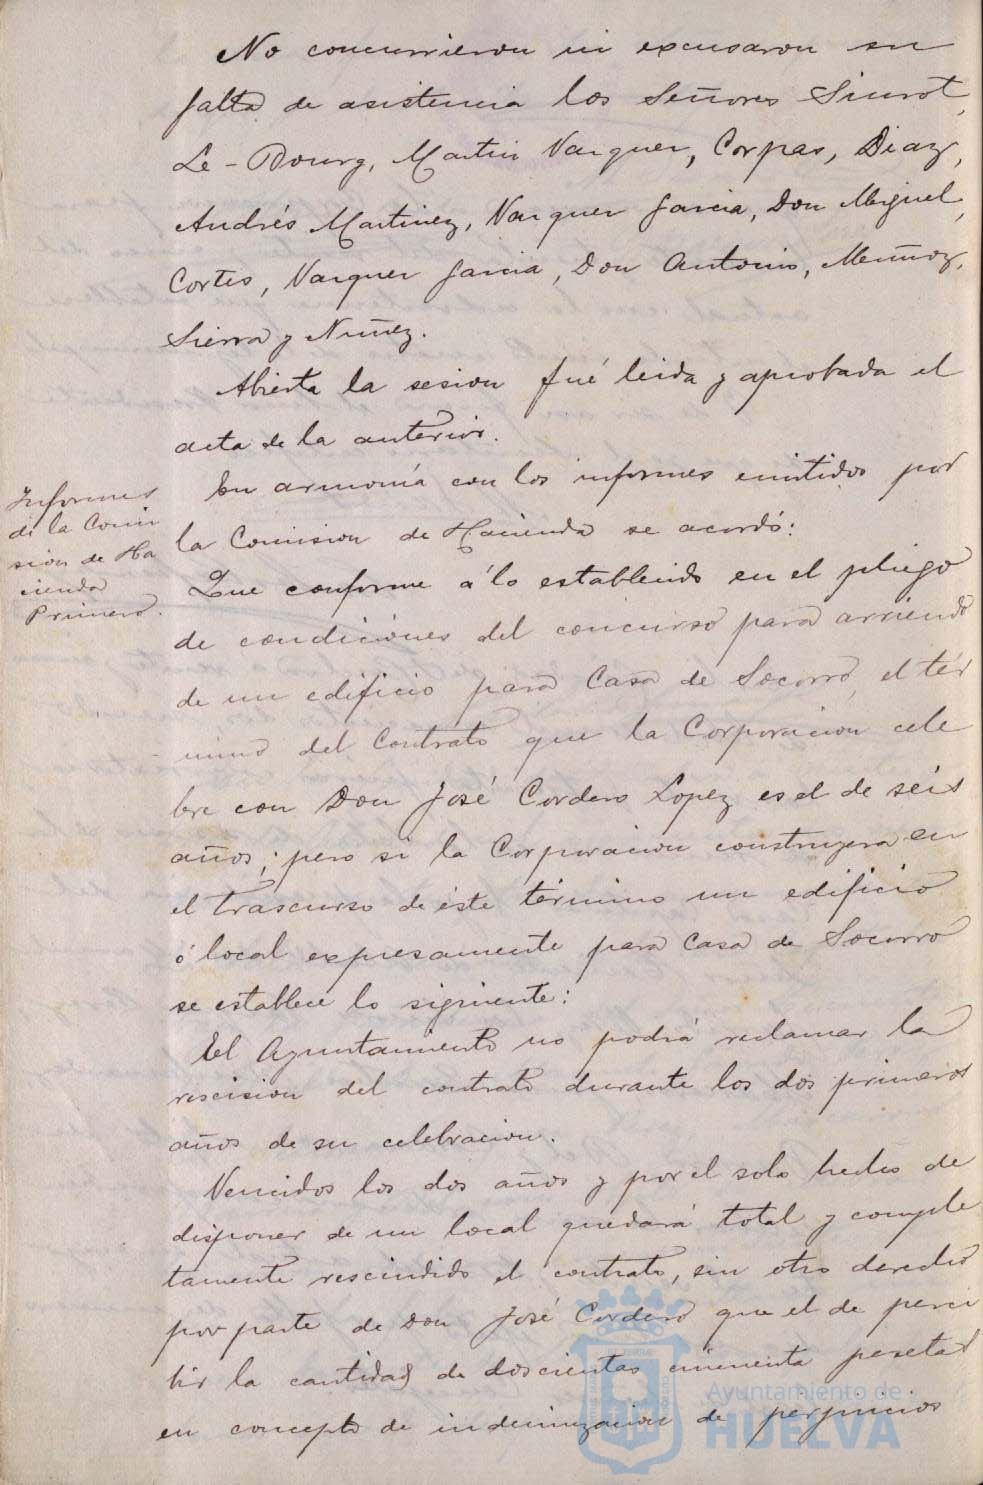 No concurrieron ni excusaron su
falta de asistencia los Señores Siurot,
Le-Bourg, Martin Vazquez, Corpas, Diaz,
Andrés Martinez, Vazquez Garcia, Don Miguel,
Cortes, Vazquez Garcia, Don Antonio, Muñoz,
Sierra y Nuñez.
Abierta la sesion fué leida y aprobada el
acta de la anterior.
Informes
de la Comi
sión de Ha
cienda
Primero.
En armonía con los informes emitidos por
la Comision de Hacienda se acordó:
Que conforme á lo establecido en el pliego
de condiciones del concurso para arriendo
de un edificio para Casa de Socorro, el tér
mino del Contrato que la Corporacion cele
bre con Don José Cordero Lopez es el de séis
años; pero si la Corporacion construyera en
el trascurso de éste término un edificio
ó local expresamente para Casa de Socorro
se establece lo siguiente:
El Ayuntamiento no podrá reclamar la
rescision del contrato durante los dos primeros
años de su celebracion.
Vencidos los dos años y por el solo hecho de
disponer de un local quedará total y comple
tamente rescindido el contrato, sin otro derecho
por parte de Don José Cordero que el de perci
bir la cantidad de doscientas cincuenta pesetas
en concepto de indemnizacion de perjuicios
Ayuntamiento de
HUELVA